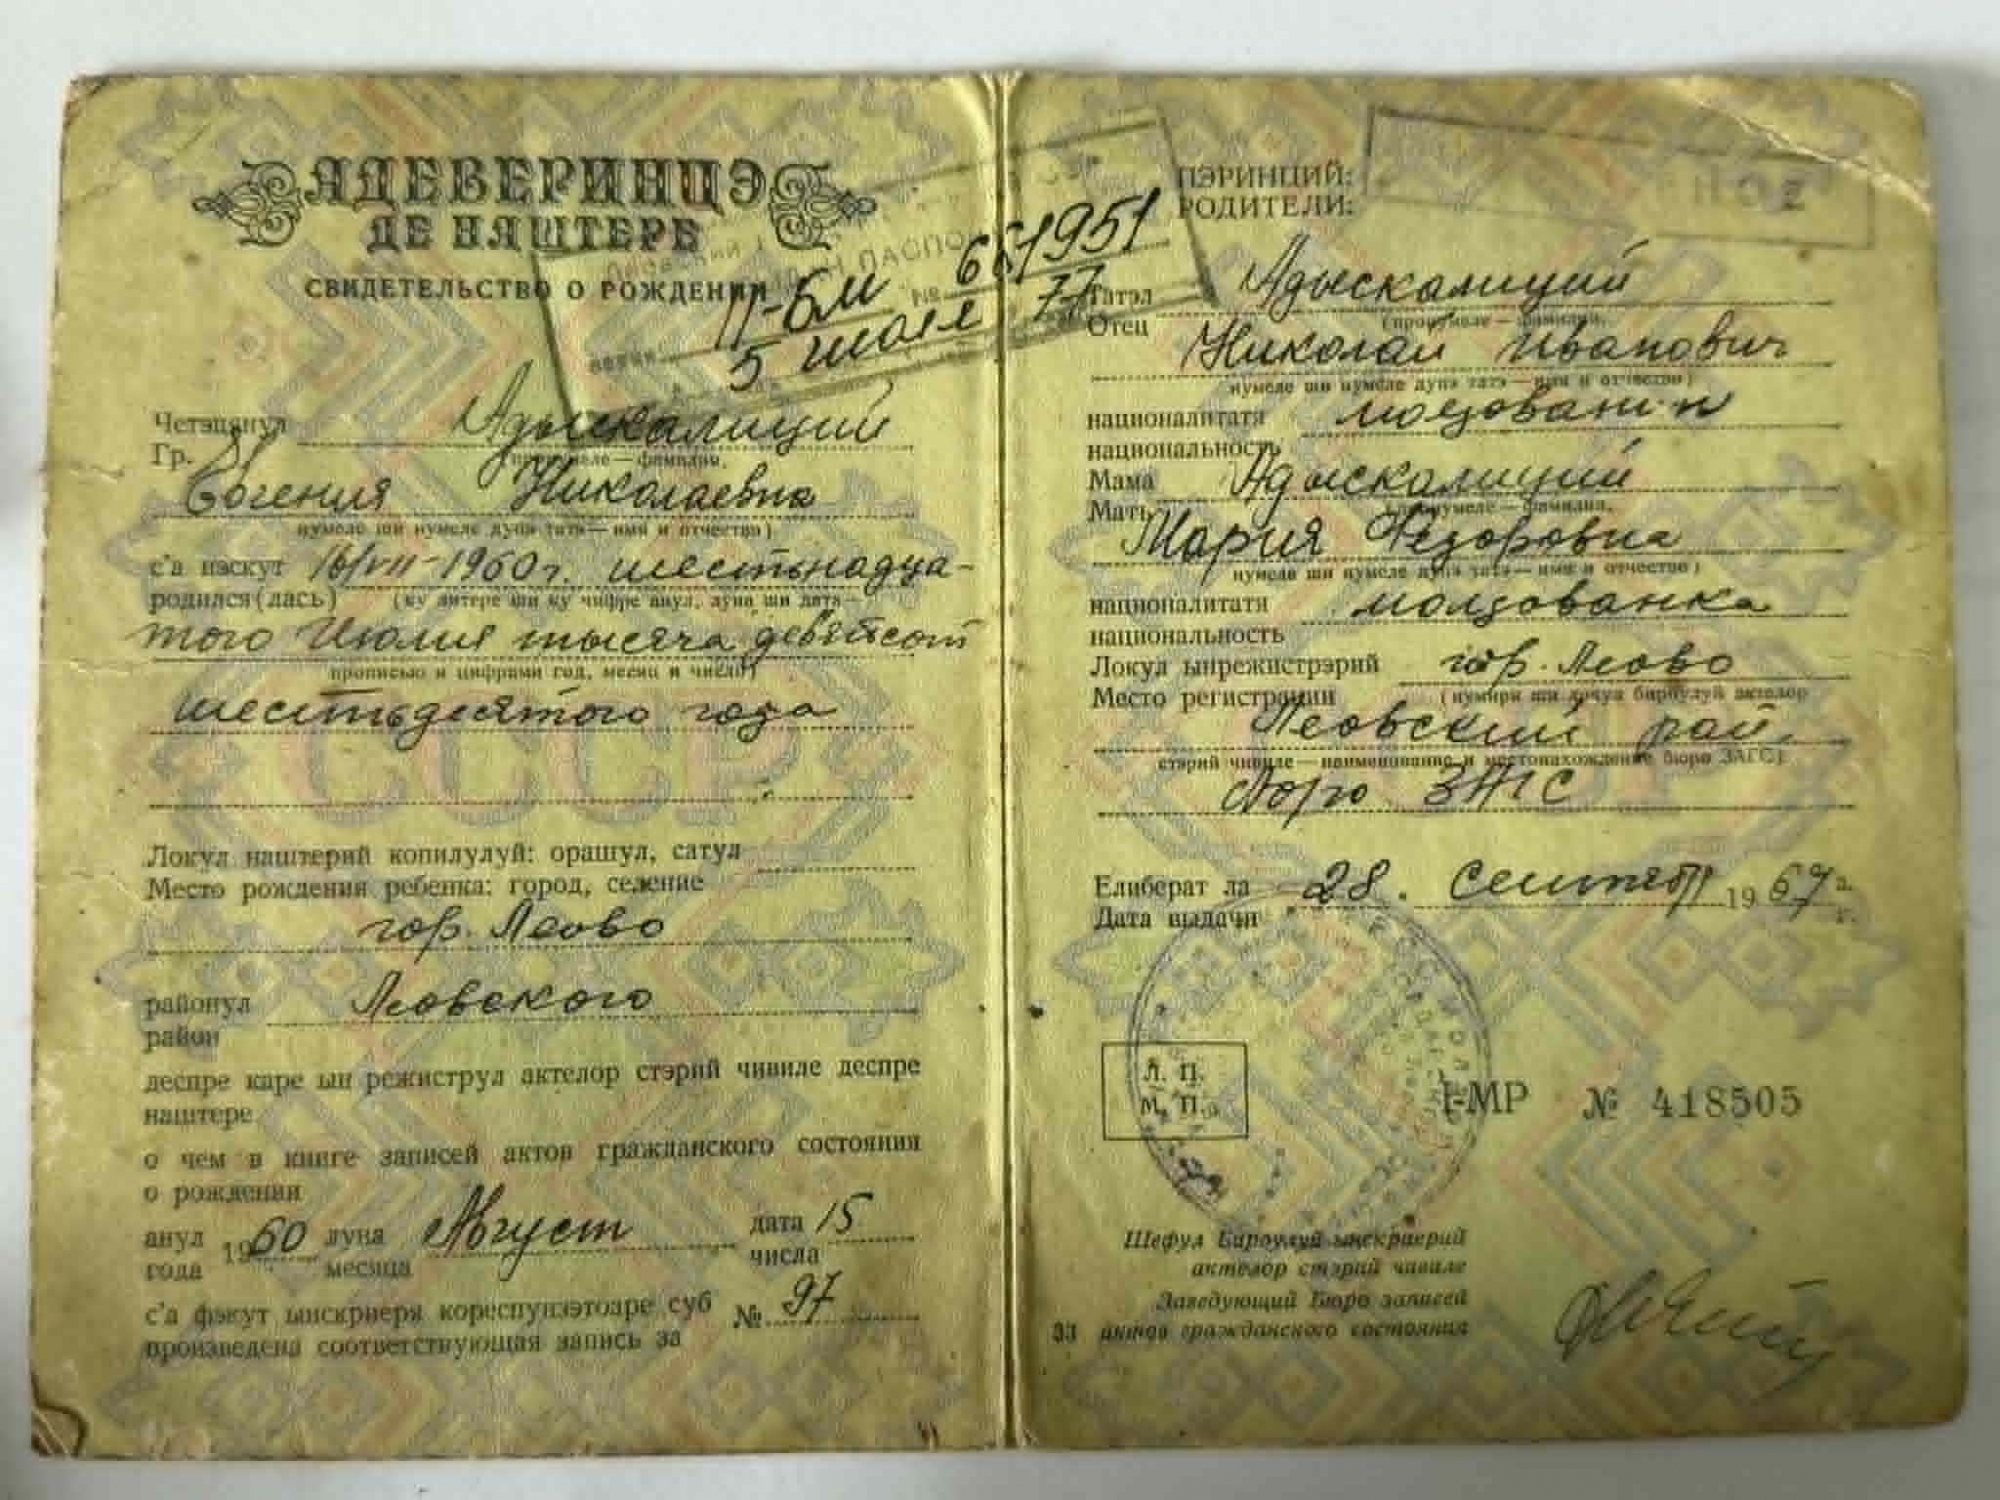 АДЕВЕРИНЦЭ
ДЕ НАШТЕРЕ
СВИДЕТЕЛЬСТВО О РОЖДЕНИИ
ПАСПО
II-БМ № 661951
5 июля 77
Четэцянул Адыскалиций
Гр. (нумеле — фамилия,
Евгения Николаевна
нумеле ши нумеле дупэ татэ — имя и отчество)
с'а нэскут 16/VII-1960г. шестьнадца-
родился(лась) (ку литере ши ку чифре анул, луна ши дата —
того Июля тысяча девятсот
прописью и цифрами год, месяц и число)
шестьдесятого года
СССР
Локул наштерий копилулуй: орашул, сатул
Место рождения ребенка: город, селение
гор. Леово
районул Леовского
район
деспре каре ын режиструл актелор стэрий чивиле деспре
наштере
о чем в книге записей актов гражданского состояния
о рождении
анул 1960 луна Август дата 15
года месяца числа
с'а фэкут ынскриеря кореспунзэтоаре суб № 97
произведена соответствующая запись за
ПЭРИНЦИЙ:
РОДИТЕЛИ:
Татэл Адыскалиций
Отец (пронумеле — фамилия,
Николай Иванович
нумеле ши нумеле дупэ татэ — имя и отчество)
националитатя молдованин
национальность
Мама Адыскалиций
Мать (пронумеле — фамилия,
Мария Федоровна
нумеле ши нумеле дупэ татэ — имя и отчество)
националитатя молдованка
национальность
Локул ынрежистрэрий гор. Леово
Место регистрации (нумиря ши локул бироулуй актелор
Леовский рай.
стэрий чивиле — наименование и местонахождение бюро ЗАГС)
бюро ЗАГС
Елиберат ла 28. Сентябр 1967 а.
Дата выдачи г.
Л. П.
М. П.
I-МР № 418505
Шефул Бироулуй ынскриерий
актелор стэрий чивиле
Заведующий Бюро записей
33 актов гражданского состояния